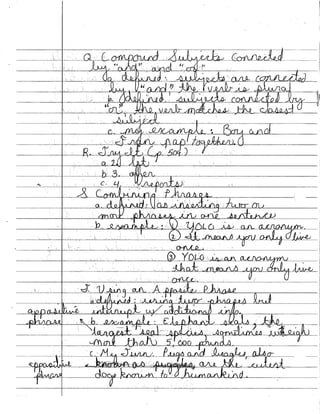 Q. Compound Subjects Connected
by "and" and "or"
a. defined: subjects are connected
by "and" the verb is plural
b. defined: subjects connected by
"or", the verb matches the closest
subject
c. my example: Boy and
Fran nap together.
R. Try It (p. 504)
a. 2.
b. 3. often
c. 4. reports
S. Combining Phrases
a. defined: as inserting two or
more phrases in one sentence
b. example: ① YOLO is an acronym.
② It means you only live
once.
③ YOLO is an acronym
that means you only live
once.
T. Using an Apposite Phrase
a. defined: using two phrases but
appositive interrupt w/ additional info.
phrase b. example: Elephant seals, the
largest seal species, sometimes weigh
more than 5,000 pounds.
c. My Turn: Pugs and beagles, also
appositive known as puggles, are the cutest
phrase dogs known to humankind.